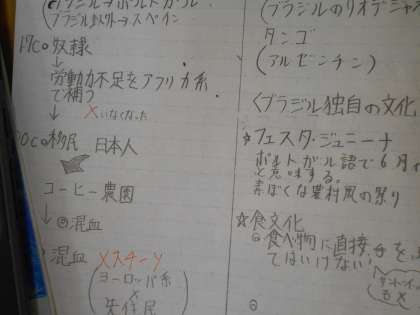 (ブラジル→ポルトガル
ブラジル以外→スペイン
17Co 奴隷
↓
労働力不足をアフリカ系
で補う
↓ ×いなくなった
移民 日本人
コーヒー農園
↓ ◎混血
混血
(ヨーロッパ系
×
先住民
(ブラジルのリオデジャネ
タンゴ
(アルゼンチン)
〈ブラジル独自の文化
☆フェスタ・ジュニーナ
ポルトガル語で6月の
と意味する。
素ぼくな農村風の祭り
☆食文化
◎食べ物に直接手を
てはいけない!